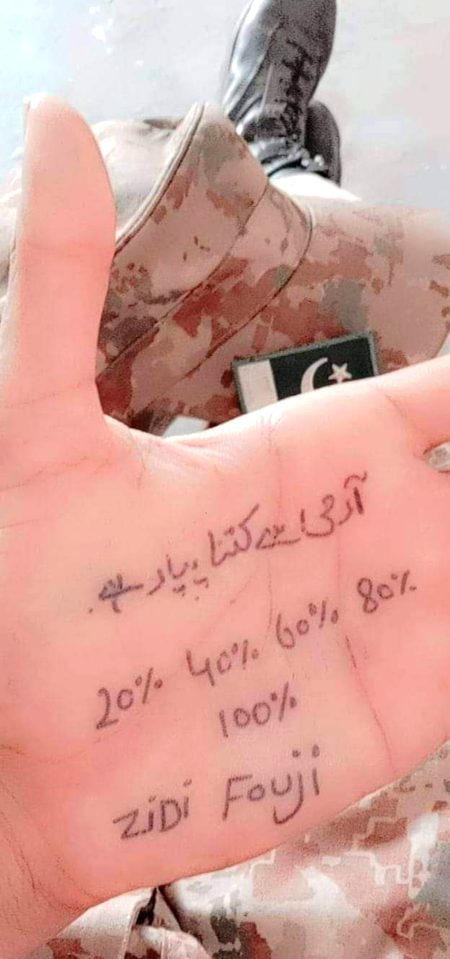 آرمی سے کتنا پیار ہے.
20% 40% 60% 80%
100%
ZiDi Fouji